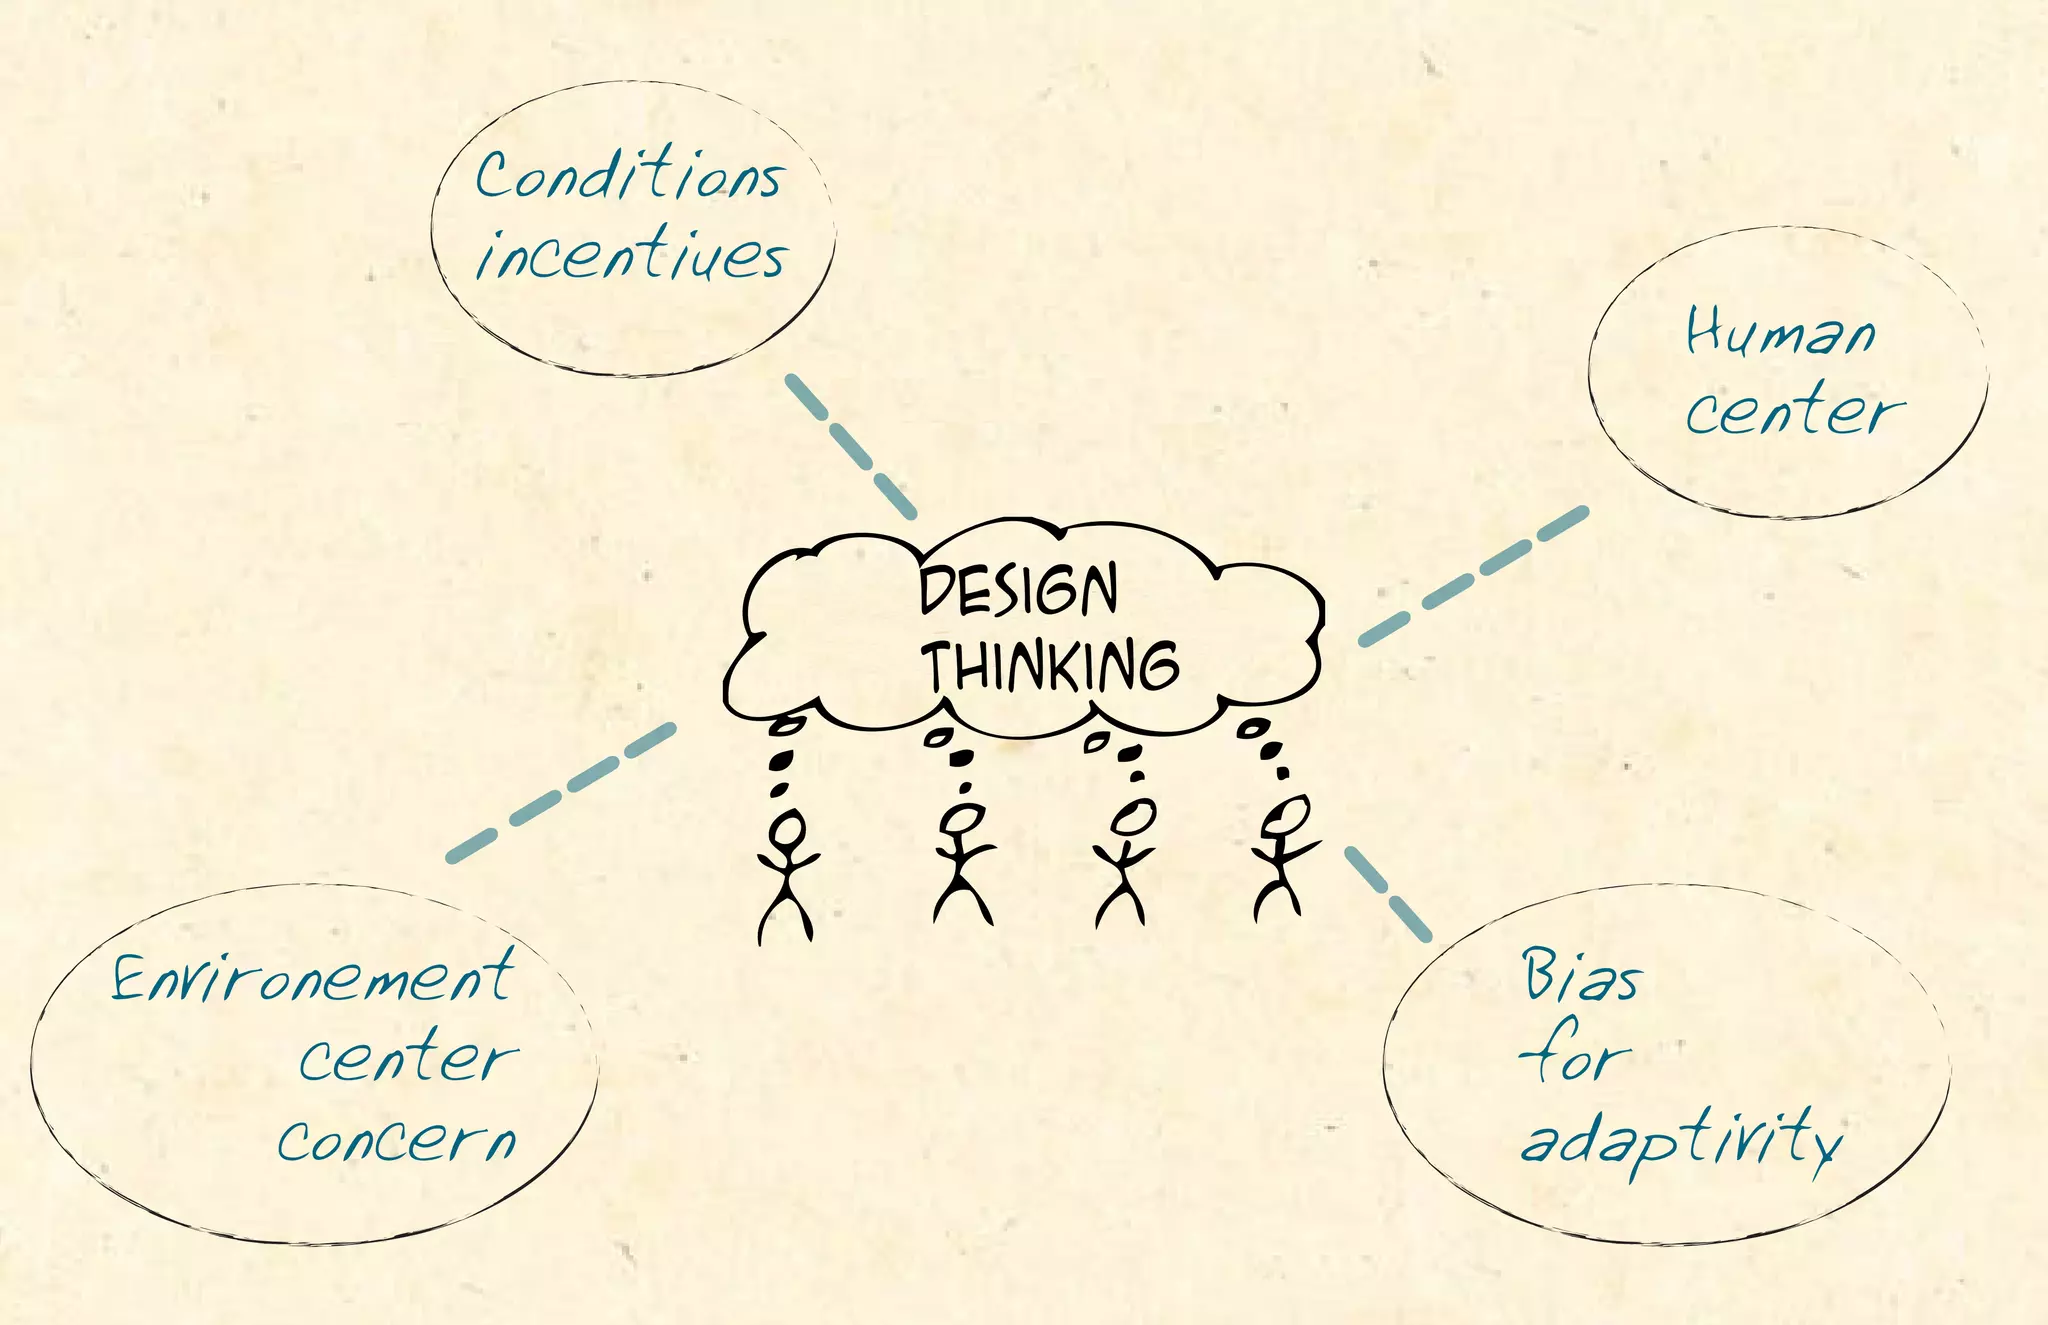 Conditions
incentives
Human
center
DESIGN
THINKING
Environement
center
concern
Bias
for
adaptivity